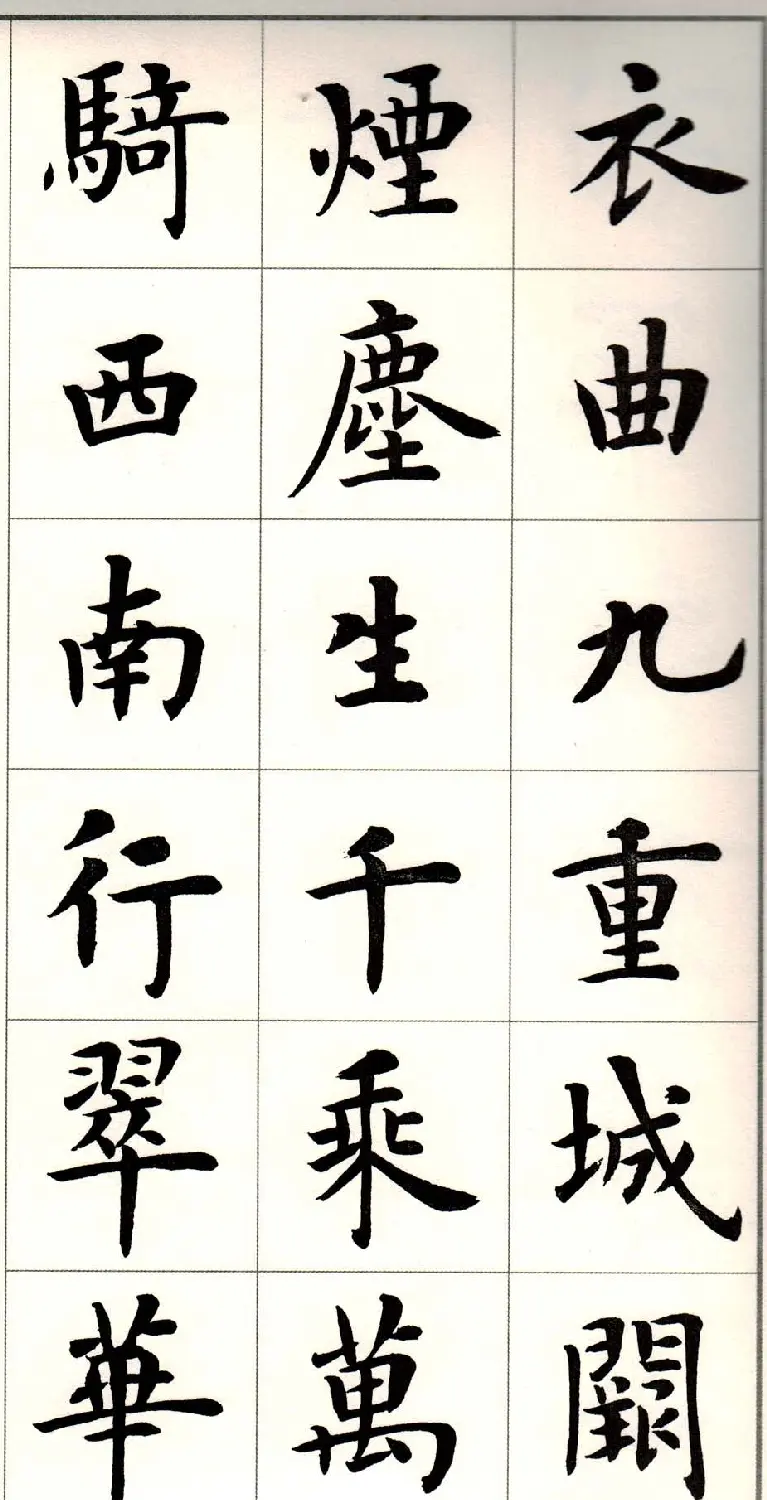 衣曲九重城闕
煙塵生千乘萬
騎西南行翠華